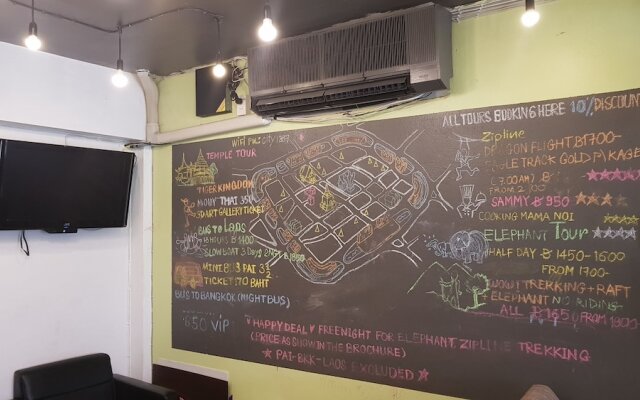 ALL TOURS BOOKING HERE 10% DISCOUNT
TEMPLE TOUR
TIGER KINGDOM
MUAY THAI 35
3D ART GALLERY TICKET
BUS TO LAOS
18 HOURS B 1400
SLOW BOAT 3 DAYS 2NGT B 1850
MINI BUS PAI 3½
TICKET 170 BAHT
BUS TO BANGKOK (NIGHT BUS)
650 VIP
Zipline
DRAGON FLIGHT B1700-
EAGLE TRACK GOLD PAKAGE
(7.00AM) B
FROM 2100
SAMMY B 950
COOKING MAMA NOI
ELEPHANT Tour
HALF DAY B 1450-1600
FROM 1700-
WOW! TREKKING + RAFT
ELEPHANT NO RIDING
ALL B 1650 FROM 1800
♥ HAPPY DEAL ♥ FREE NIGHT FOR ELEPHANT, ZIPLINE TREKKING
(PRICE AS SHOW IN THE BROCHURE)
★ PAI-BKK-LAOS EXCLUDED ★